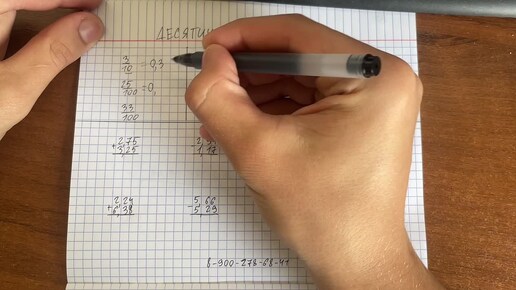 ДЕСЯТИЧ
3/10 = 0,3
25/100 = 0,
33/100
+ 2,75
3,25
- 2
1
+ 2,24
6,38
- 5,66
5,29
8-900-278-68-41